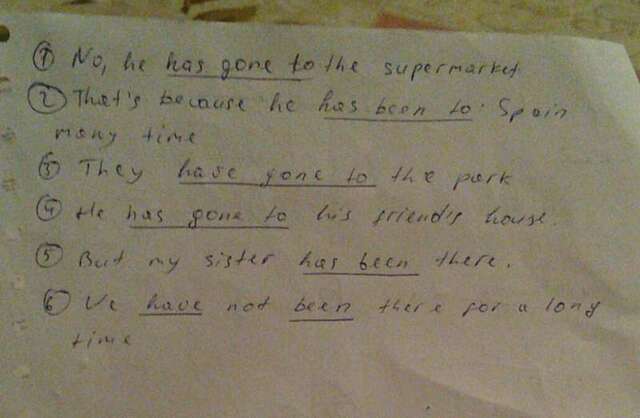 ① No, he has gone to the supermarket
② That's because he has been to Spain
many time
③ They have gone to the park
④ He has gone to his friend's house.
⑤ But my sister has been there.
⑥ We have not been there for a long
time